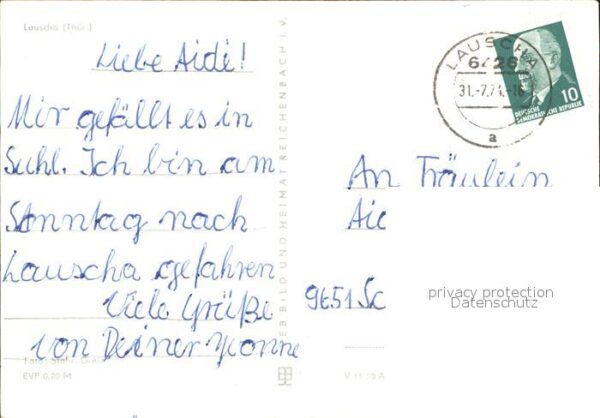 Lauscha (Thür.)
Liebe Aidé!
Mir gefällt es in
Suhl. Ich bin am
Sonntag nach
Lauscha gefahren
Viele Grüße
von Deiner Yvonne
EVP 0,20 M
VEB BILD UND HEIMAT REICHENBACH I. V.
V 11 50 A
LAUSCHA
6426
31.-7.71.-16
a
10
DEUTSCHE
DEMOKRATISCHE REPUBLIK
An Fräulein
Aic
9651 Sc
privacy protection
Datenschutz